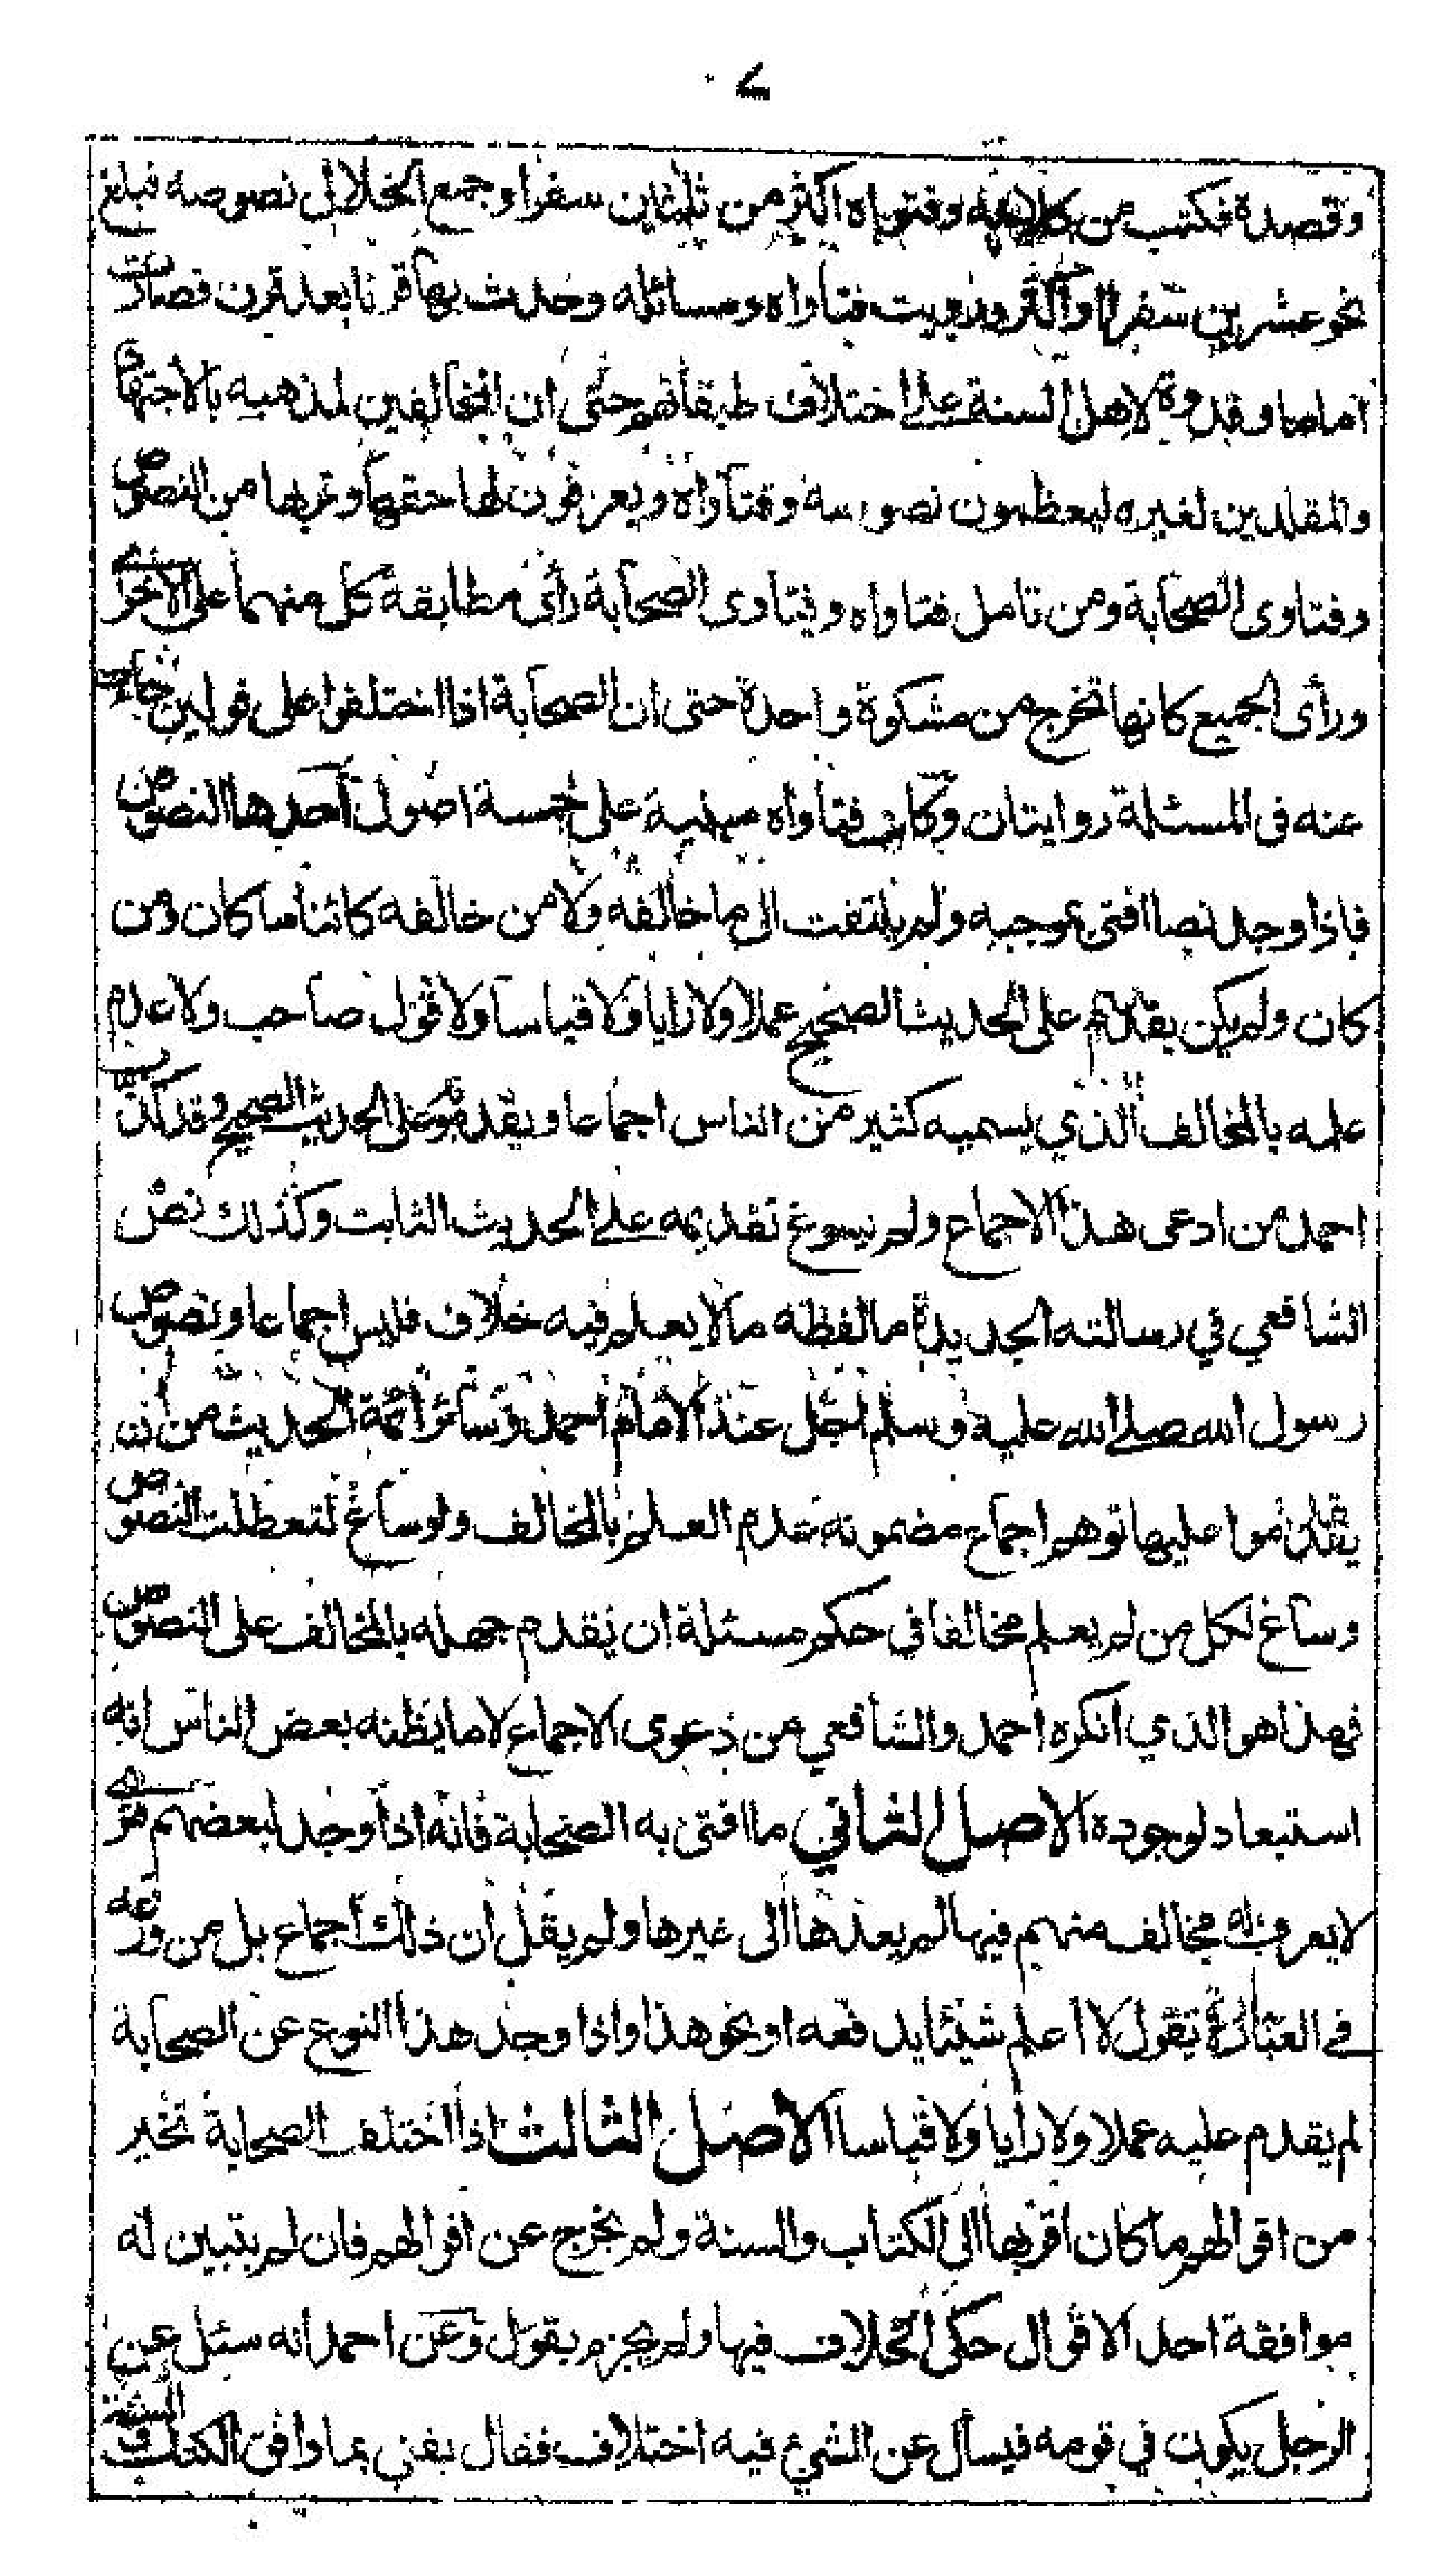 ٧
وقصده فكتب من كلامه وفتواه اكثر من ثلاثين سفرا وجمع الخلال نصوصه فبلغ
نحو عشرين سفرا او اكثر ورويت فتاواه ومسائله وحدث بها قرنا بعد قرن فصارت
اماما وقدوة لاهل السنة على اختلاف طبقاتهم حتى ان المخالفين لمذهبه بالاجتهاد
والمقلدين لغيره ليعظمون نصوصه وفتاواه ويعرفون لها حقها وقربها من النصوص
وفتاوى الصحابة ومن تامل فتاواه وفتاوى الصحابة رأى مطابقة كل منهما على الاخرى
ورأى الجميع كانها تخرج من مشكوة واحدة حتى ان الصحابة اذا اختلفوا على قولين جاء
عنه فى المسئلة روايتان وكان فتاواه مبنية على خمسة اصول احدها النصوص
فاذا وجد نصا افتى بموجبه ولم يلتفت الى ما خالفه ولا من خالفه كائنا ما كان ومن
كان ولم يكن يقدم على الحديث الصحيح عملا ولا رايا ولا قياسا ولا قول صاحب ولا عدم
علمه بالمخالف الذي يسميه كثير من الناس اجماعا ويقدمونه على الحديث الصحيح وقد كذب
احمد من ادعى هذا الاجماع ولم يسوغ تقديمه على الحديث الثابت وكذلك نص
الشافعي في رسالته الجديدة ما لفظه مالا يعلم فيه خلاف فليس اجماعا ونصوص
رسول الله صلى الله عليه وسلم اجل عند الامام احمد وسائر ائمة الحديث من ان
يقدموا عليها توهم اجماع مضمونه عدم العلم بالمخالف ولو ساغ لتعطلت النصوص
وساغ لكل من لم يعلم مخالفا في حكم مسئلة ان يقدم جهله بالمخالف على النصوص
فهذا هو الذي انكره احمد والشافعي من دعوى الاجماع لا ما يظنه بعض الناس انه
استبعاد لوجوده الاصل الثاني ما افتى به الصحابة فانه اذا وجد لبعضهم فتوى
لا يعرف له مخالف منهم فيها لم يعدها الى غيرها ولم يقل ان ذلك اجماع بل من ورعه
في العبارة يقول لا اعلم شيئا يدفعه او نحو هذا واذا وجد هذا النوع عن الصحابة
لم يقدم عليه عملا ولا رايا ولا قياسا الاصل الثالث اذا اختلف الصحابة تخير
من اقوالهم ما كان اقربها الى الكتاب والسنة ولم يخرج عن اقوالهم فان لم يتبين له
موافقة احد الاقوال حكى الخلاف فيها ولم يجزم بقول وعن احمد انه سئل عن
الرجل يكون في قومه فيسأل عن الشيئ فيه اختلاف فقال يفتي بما وافق الكتاب والسنة